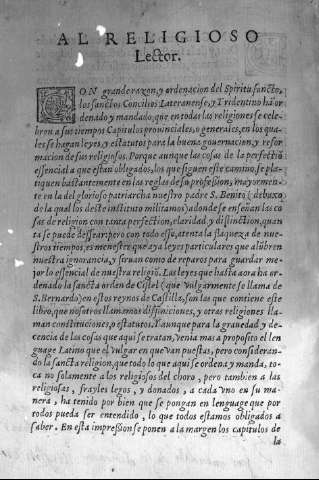 AL RELIGIOSO
Lector.
CON grande razon, y ordenacion del Spiritu sancto,
los sanctos Concilios Lateranense, y Tridentino hã or
denado y mandado, que en todas las religiones se cele-
bren a sus tiempos Capitulos prouinciales, o generales, en los qua-
les se hagan leyes, y estatutos para la buena gouernacion, y refor
macion de sus religiosos. Porque aunque las cosas de la perfectiõ
essencial a que estan obligados, los que siguen este camino, se pla-
tiquen bastantemente en las reglas de su professiõ, mayormen-
te en la del glorioso patriarcha nuestro padre S. Benito (debaxo
de la qual los deste instituto militamos) adonde se enseñan las co
sas de religion con tanta perfectiõn, claridad, y distinctiõn, quan
ta se puede dessear: pero con todo esso, atenta la flaqueza de nue-
stros tiempos, es menester que aya leyes particulares que alũbren
nuestra ignorancia, y siruan como de reparos para guardar me-
jor lo essencial de nuestra religiõ. Las leyes que hasta aora ha or
denado la sancta orden de Cistel (que vulgarmente se llama de
S. Bernardo) en estos reynos de Castilla, son las que contiene este
libro, que nosotros llamamos diffiniciones, y otras religiones lla-
man constituciones, o estatutos. Y aunque para la grauedad, y de-
cencia de las cosas que aqui se tratan, venia mas a proposito el len
guage Latino que el vulgar en que van puestas, pero consideran-
do la sancta religion, que todo lo que aqui se ordena, y manda, to-
ca no solamente a los religiosos del choro, pero tambien a las
religiosas, frayles legos, y donados, a cada vno en su ma-
nera, ha tenido por bien que se pongan en lenguage que por
todos pueda ser entendido, lo que todos estamos obligados a
saber. En esta impressiõn se ponen a la margen los capitulos de
la